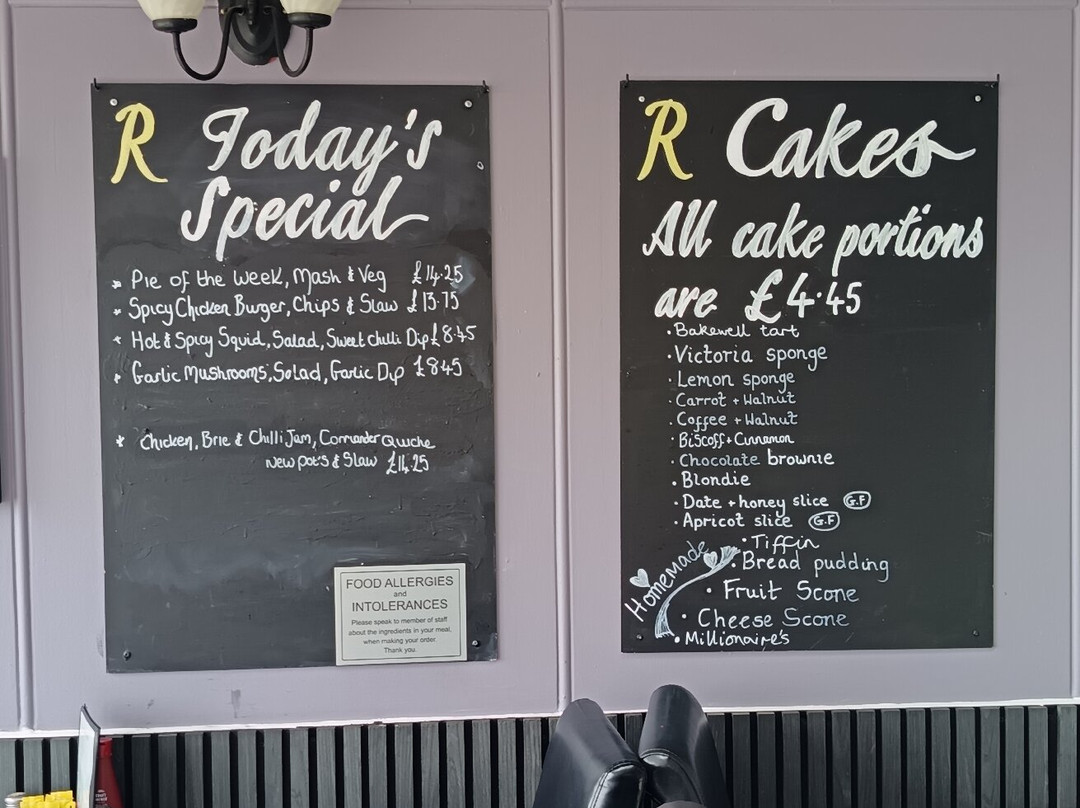 R Today's
Special
* Pie of the Week, Mash & Veg £14.25
* Spicy Chicken Burger, Chips & Slaw £13.75
* Hot & Spicy Squid, Salad, Sweet chilli Dip £8.45
* Garlic Mushrooms, Salad, Garlic Dip £8.45
* Chicken, Brie & Chilli Jam, Corriander Quiche
New pot's & Slaw £14.25
FOOD ALLERGIES
and
INTOLERANCES
Please speak to member of staff
about the ingredients in your meal,
when making your order.
Thank you.
R Cakes
All cake portions
are £4.45
• Bakewell tart
• Victoria sponge
• Lemon sponge
• Carrot + Walnut
• Coffee + Walnut
• Biscoff + Cinnamon
• Chocolate brownie
• Blondie
• Date + honey slice G.F
• Apricot slice G.F
• Tiffin
• Bread pudding
Homemade
• Fruit Scone
• Cheese Scone
• Millionaire's